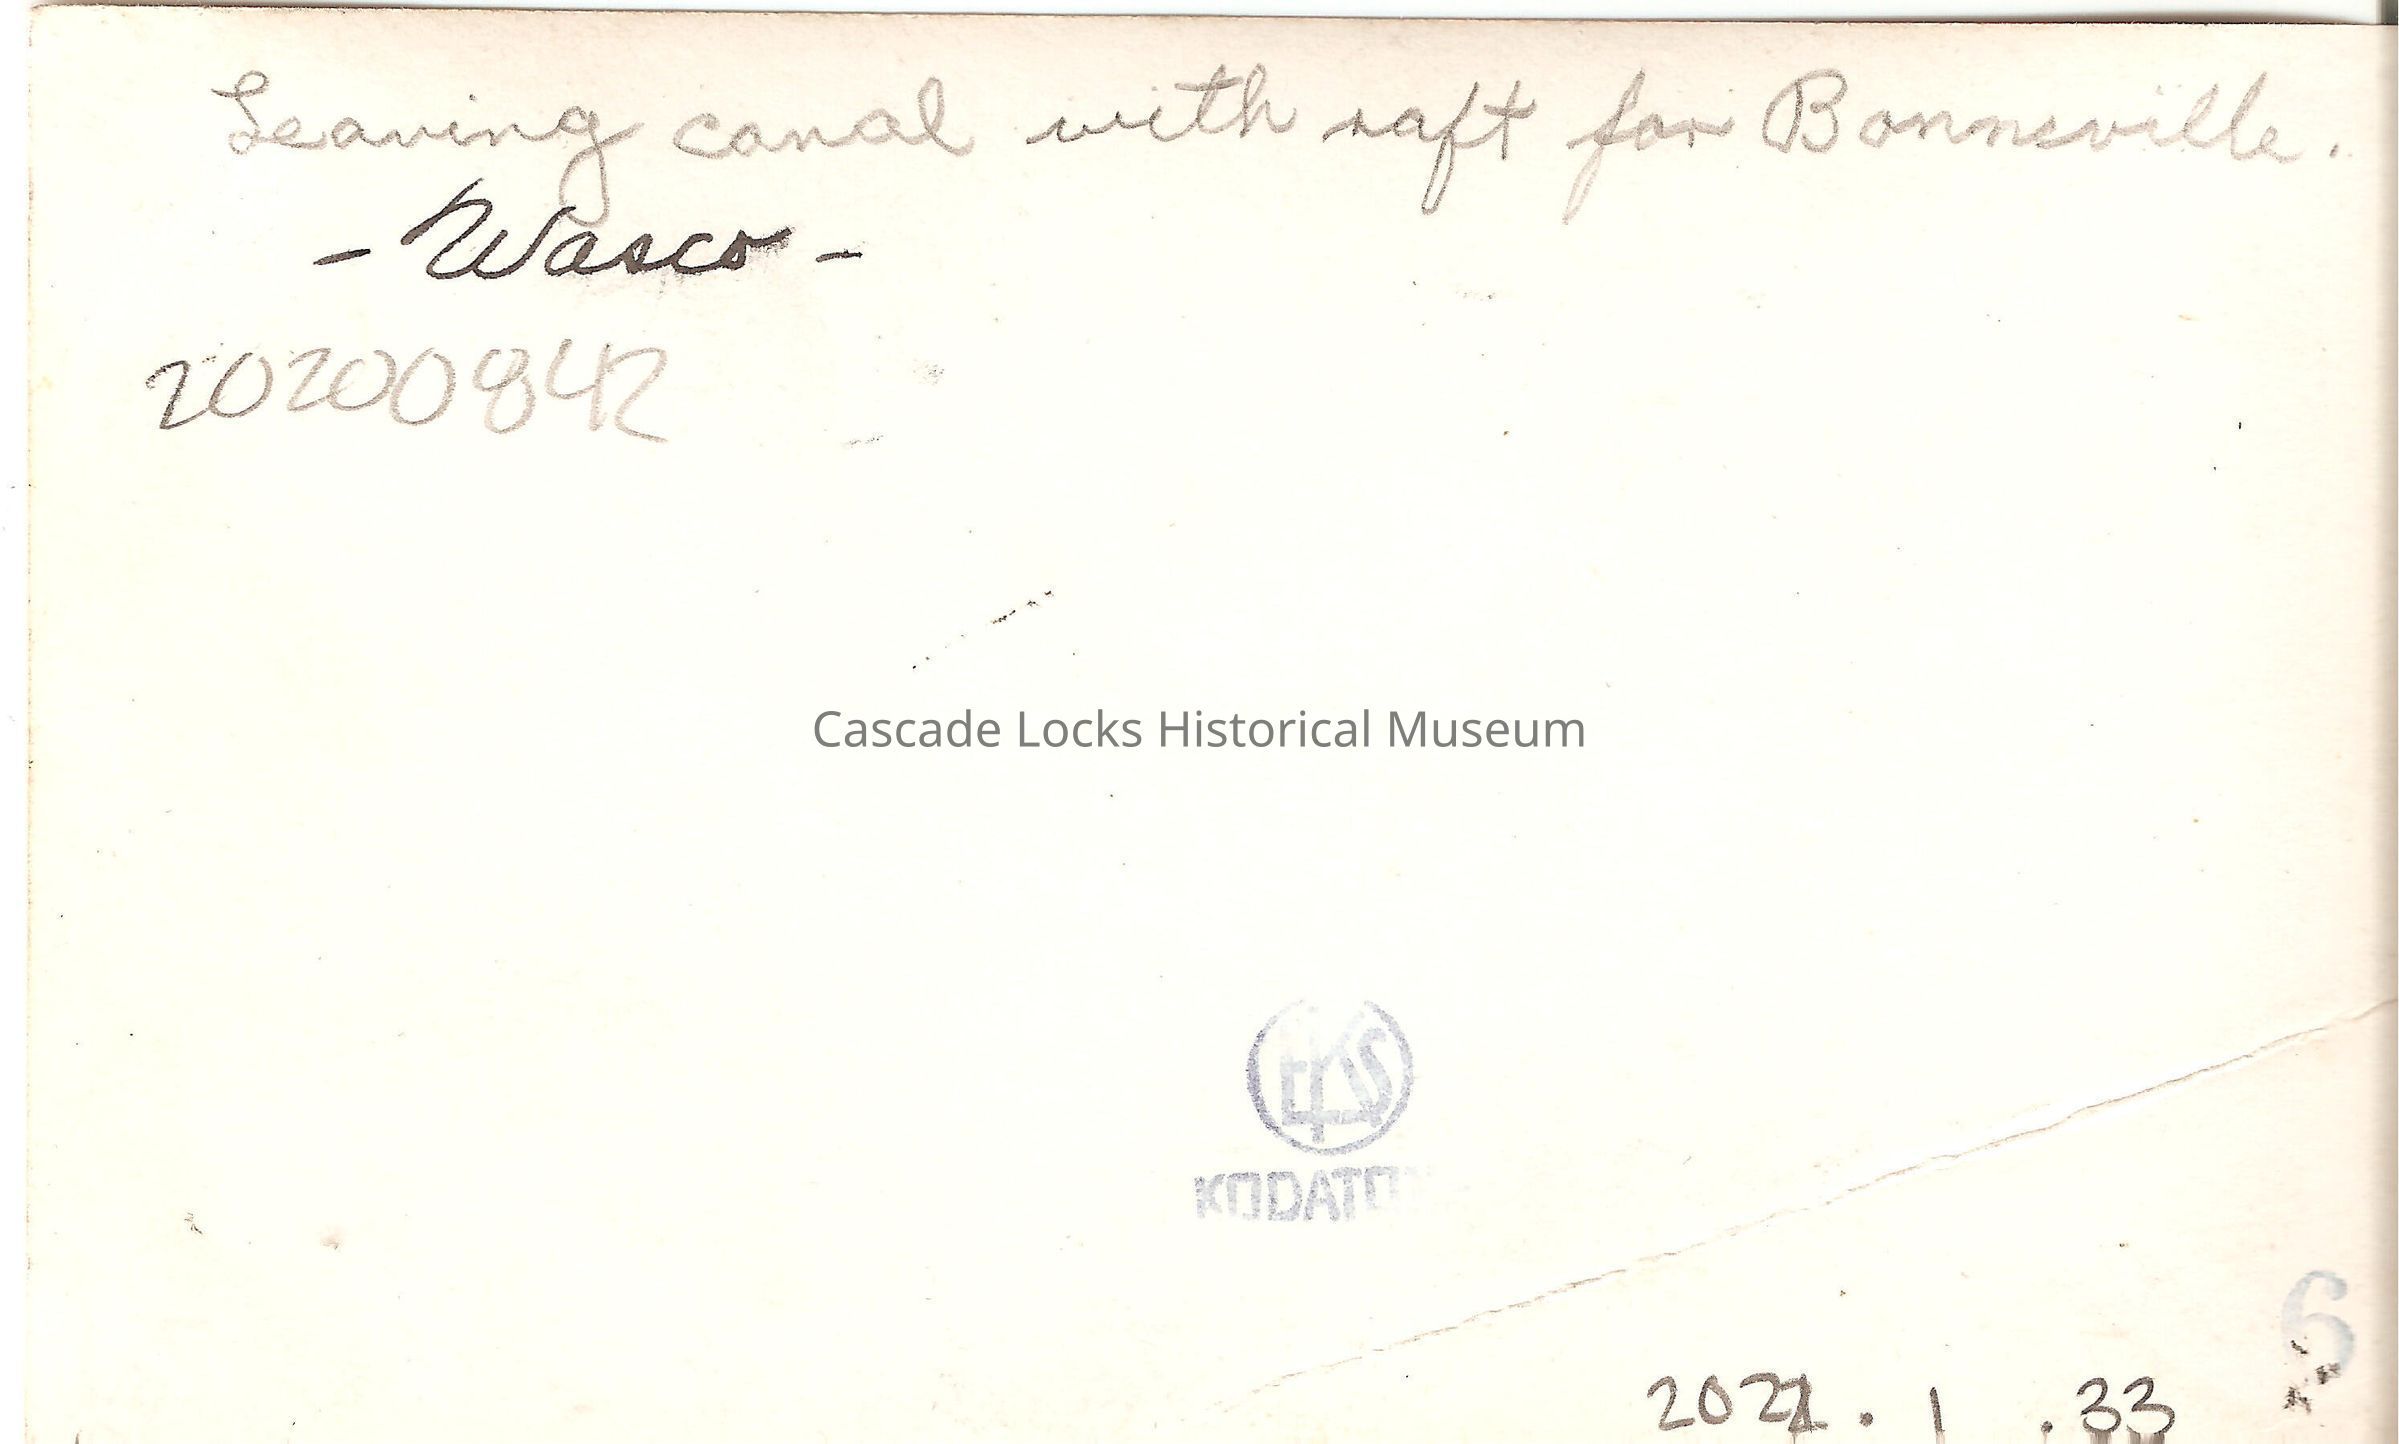 Leaving canal with raft for Bonneville.
- Wasco -
20200842
Cascade Locks Historical Museum
EKS
KODATO
6
2021.1.33